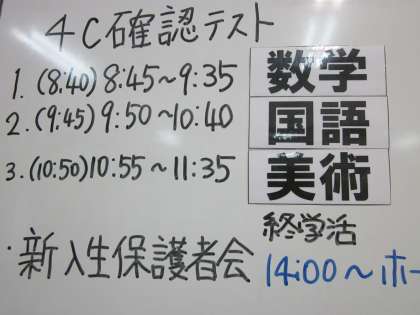 4C確認テスト
1. (8:40) 8:45～9:35 数学
2. (9:45) 9:50～10:40 国語
3. (10:50) 10:55～11:35 美術
終学活
・新入生保護者会 14:00～ホー